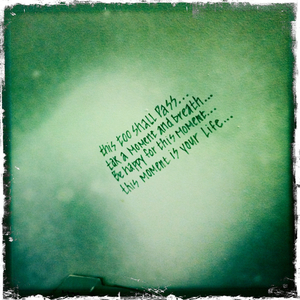 this too shall pass...
tak a moment and breath...
Be happy for this moment...
this moment is your life...